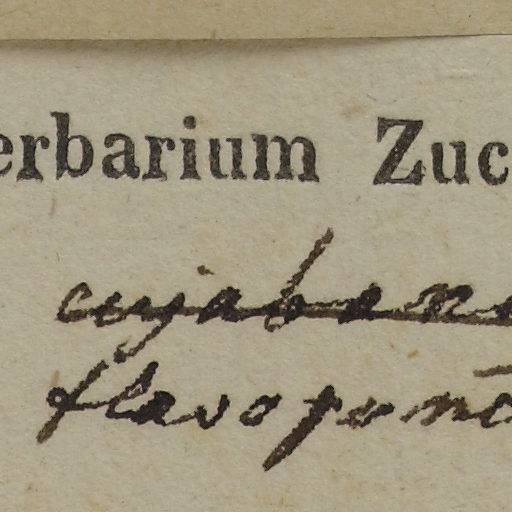 erbarium Zuc
cujabens
flavopunc